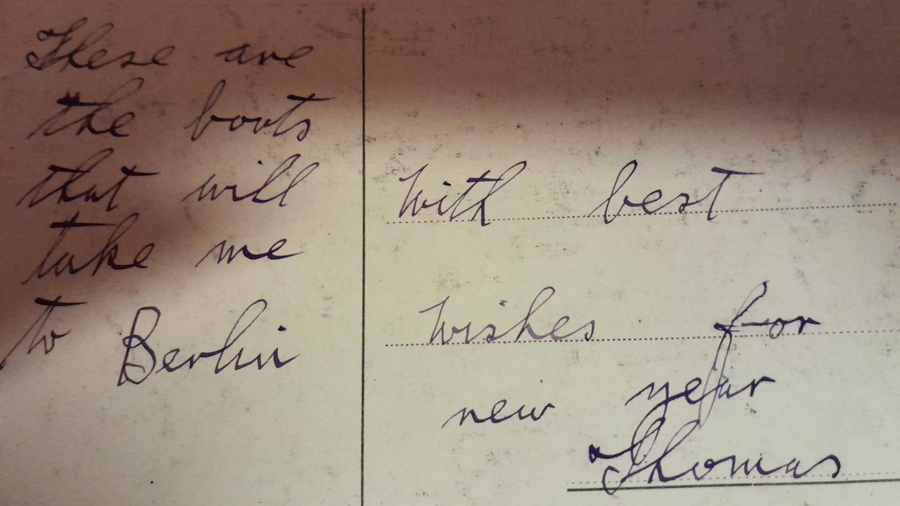 These are
the boots
that will
take me
to Berlin
With best
wishes for
new year
Thomas